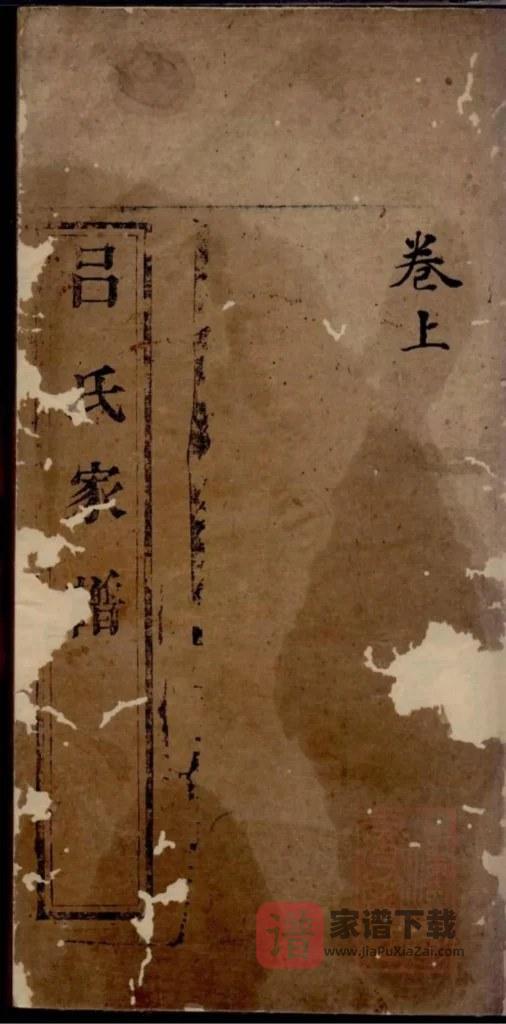 卷上
吕氏家譜
谱 家谱下载
www.jiaPuXiaZai.com